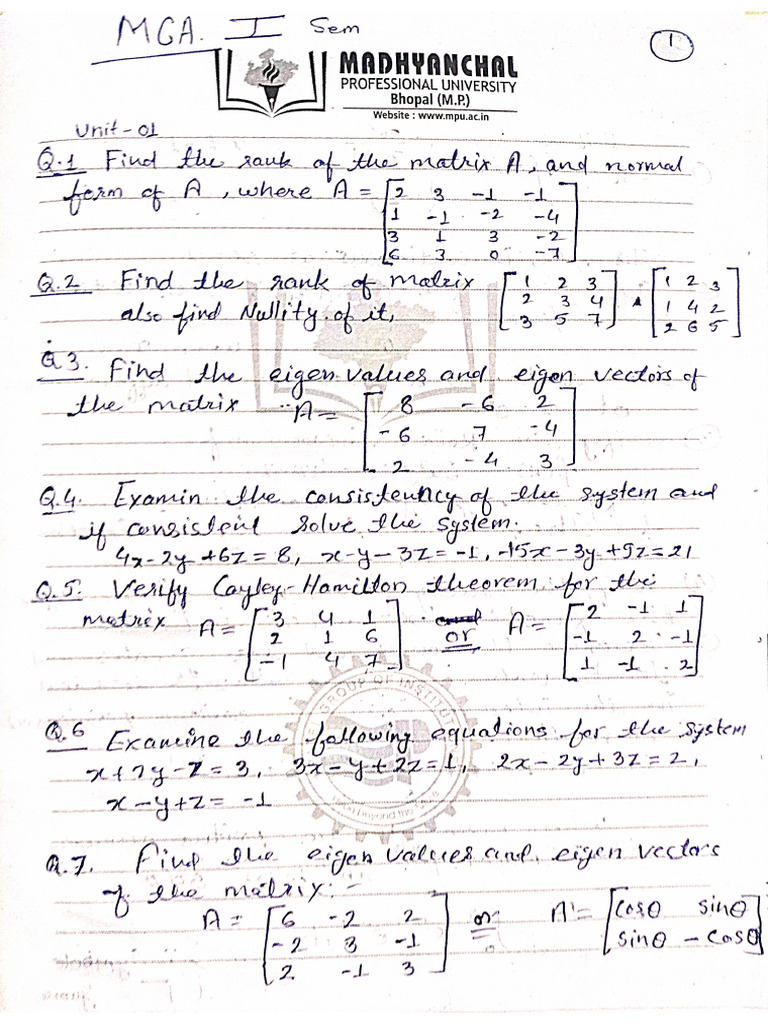 MCA. I Sem
1
MADHYANCHAL
PROFESSIONAL UNIVERSITY
Bhopal (M.P.)
Website : www.mpu.ac.in
Unit-01
Q.1 Find the rank of the matrix A, and normal
form of A, where A = [2 3 -1 -1
1 -1 -2 -4
3 1 3 -2
6 3 0 -7]
Q.2 Find the rank of matrix [1 2 3 [1 2 3
also find Nullity of it, 2 3 4 1 4 2
3 5 7] 2 6 5]
Q3. Find the eigen values and eigen vectors of
the matrix A = [8 -6 2
-6 7 -4
2 -4 3]
Q.4. Examin the consistency of the system and
if consistent solve the system.
4x-2y+6z=8, x-y-3z=-1, -15x-3y+9z=21
Q.5. Verify Cayley-Hamilton theorem for the
matrix A = [3 4 1 or A = [2 -1 1
2 1 6 -1 2 -1
-1 4 7] 1 -1 2]
GROUP OF INSTITUT
Q.6 Examine the following equations for the system
3x-y+2z=1, 2x-2y+3z=2,
x-y+z=-1
beyond the
Q.7. Find the eigen values and eigen vectors
of the matrix:-
A = [6 -2 2 or A = [cosθ sinθ
-2 3 -1 sinθ -cosθ]
2 -1 3]